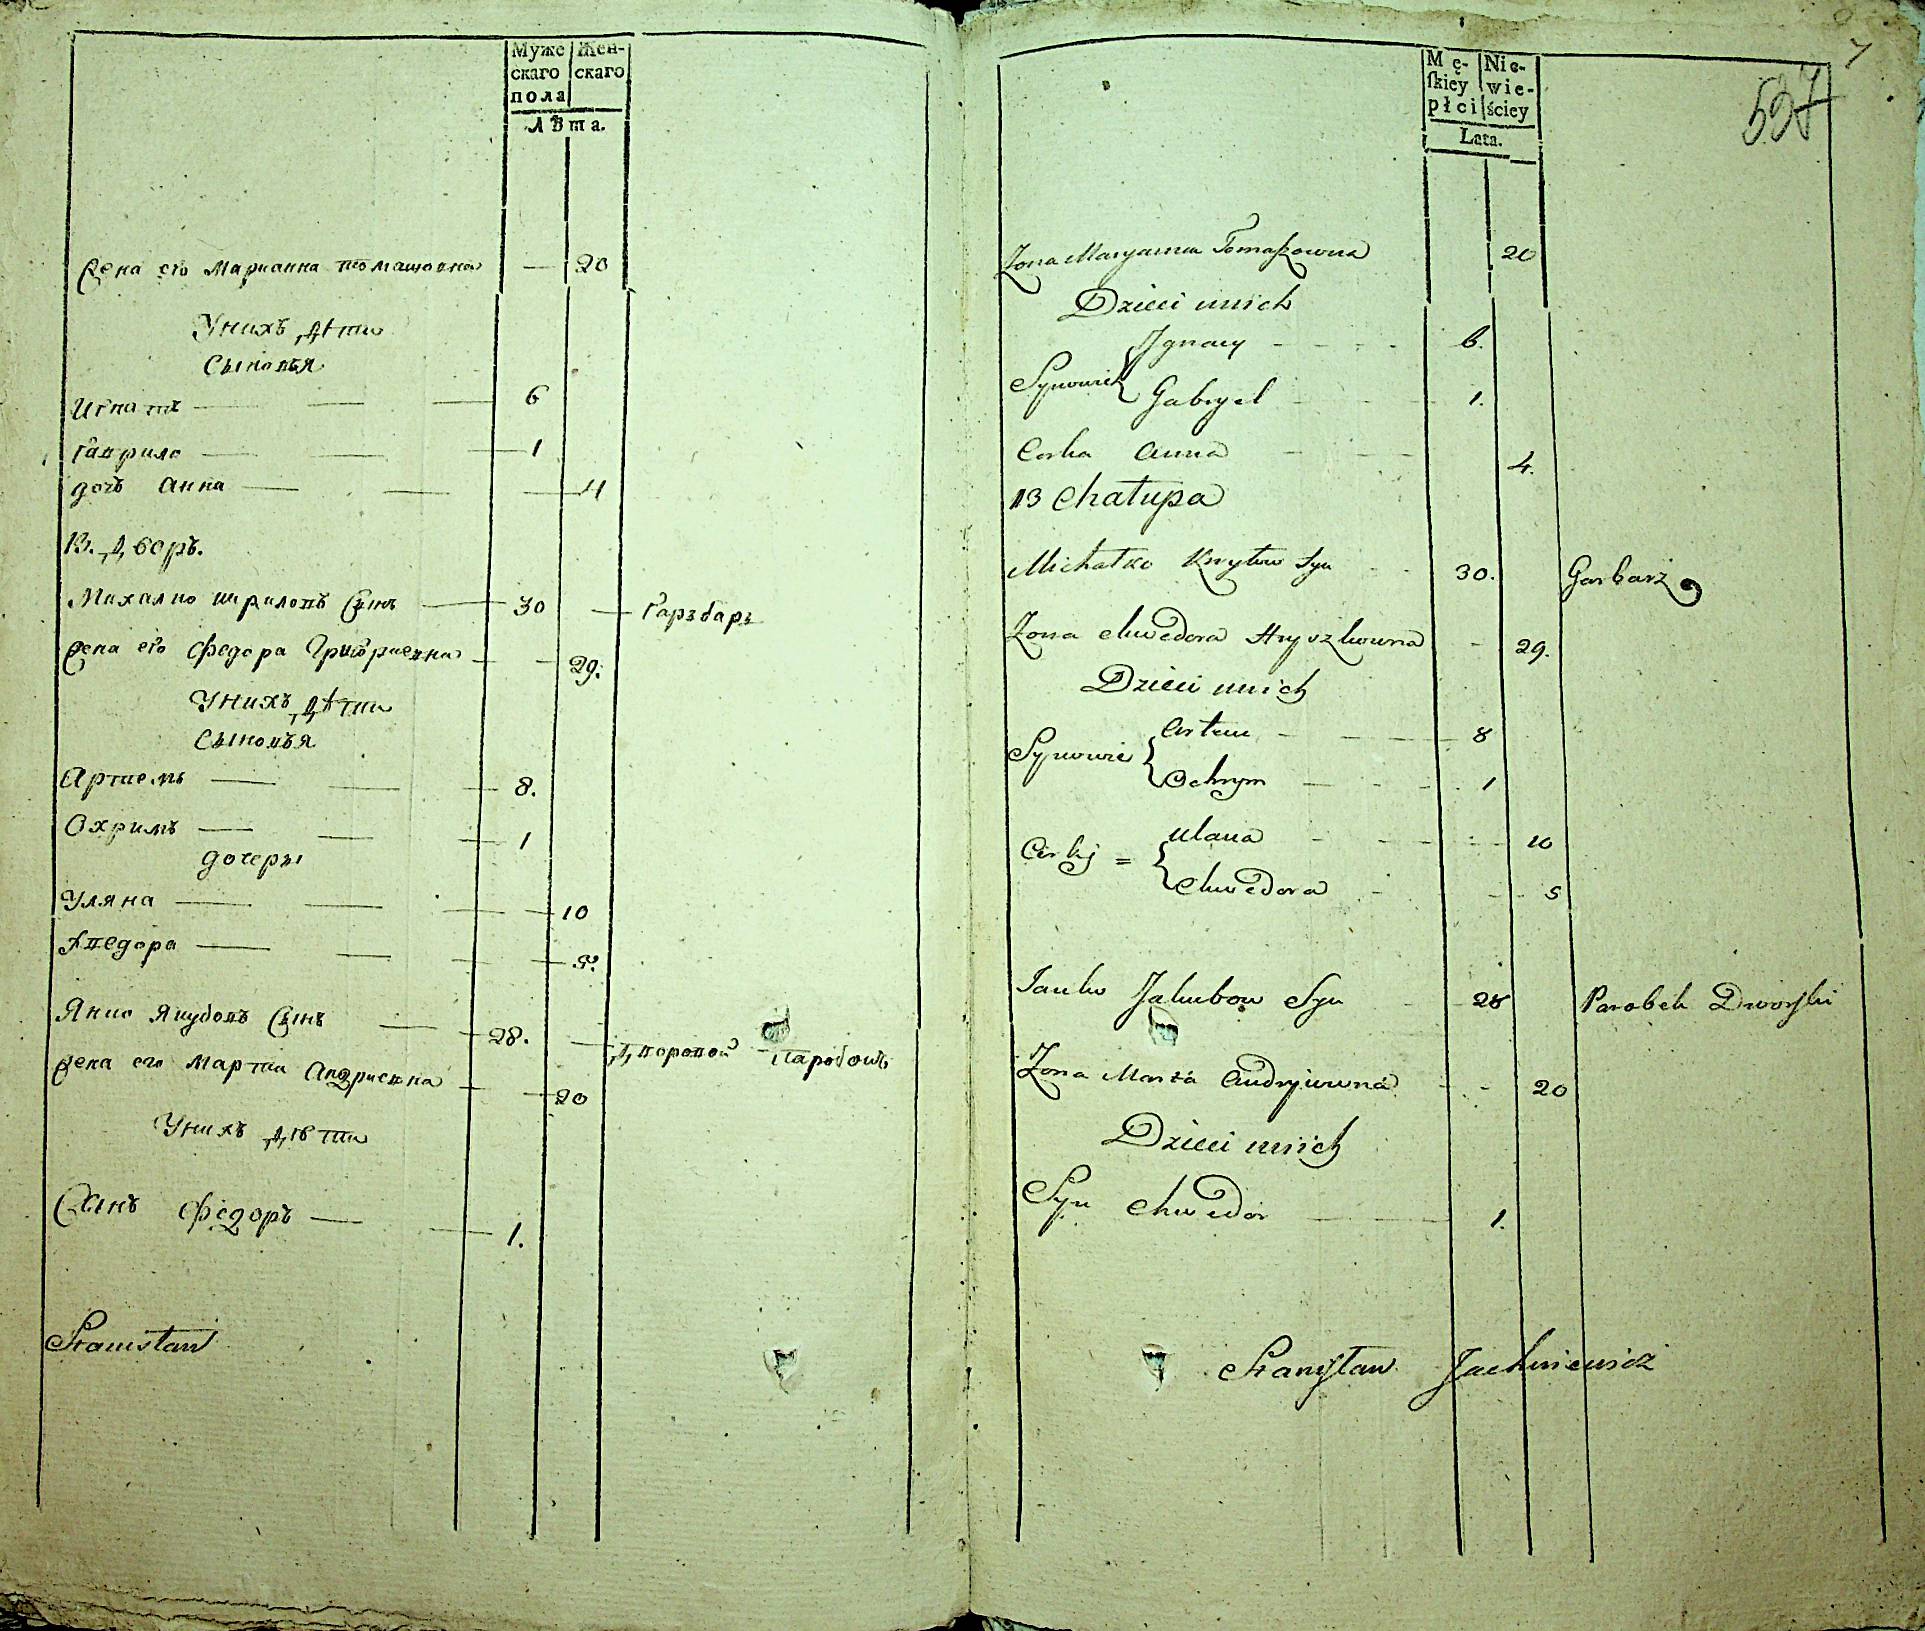 Муже Жен-
скаго скаго
пола
Лѣта.
Жена его Марианна томашовна — 20
Унихъ дѣти
Сыновья
Игнатъ — 6
гаврило — 1
дочь Анна — 4
13. Дворъ.
Михалко кирыловъ Сынъ — 30 — Гарзбарз
Жена его Федора Григориевна — 29.
Унихъ дѣти
Сыновья
Артиемъ — 8.
Охримъ — 1
дочеры
Уляна — 10
Хведора — 5.
Янко Якубовъ Сынъ — 28. — Дворовой Паробокъ
Жена его Марта Андриевна — 20
Унихъ дѣти
Сынъ Федоръ — 1.
Stanisław
7
527
Mę- Nie-
ſkiey wie-
płci ściey
Lata.
Zona Maryanna Tomaszowna 20
Dzieci unich
Synowie { Jgnacy - - - - 6.
Gabryel - - - 1.
Corka Anna - - - 4.
13 Chałupa
Michałko Kryłow Syn - - 30. Garbarz
Zona Chwedora Hryszkowna - 29.
Dzieci unich
Synowie { Artem - - - 8
Ochrym - - - 1
Corki = { Ulana - - - 10
Chwedora - - 5
Janko Jakubow Syn - 28 Parobek Dworſki
Zona Marta Andryiewna - - 20
Dzieci unich
Syn Chwedor - - 1.
Stanyſław Jachniewicz